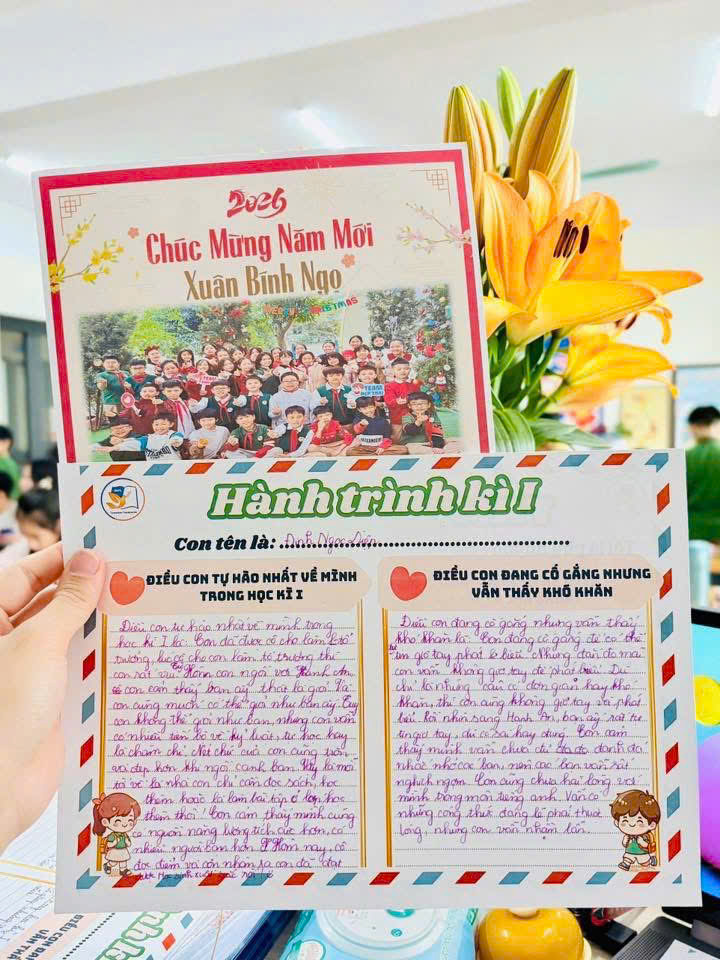 2026
Chúc Mừng Năm Mới
Xuân Bính Ngọ
Hành trình kì I
Con tên là: Đinh Ngọc Diệp
ĐIỀU CON TỰ HÀO NHẤT VỀ MÌNH
TRONG HỌC KÌ I
Điều con tự hào nhất về mình trong
học kì I là: Con đã được cô cho làm tổ
trưởng, lúc cô cho con làm tổ trưởng thì
con rất vui. Con ngồi với Hạnh An,
con cảm thấy bạn ấy thật là giỏi. Và
con cũng muốn có thể giỏi như bạn ấy. Tuy
con không thể giỏi như bạn, nhưng con vẫn
có nhiều tiến bộ về kỷ luật, tự học hay
là chăm chỉ. Nét chữ của con cũng
và đẹp hơn khi ngồi cạnh bạn.
là về nhà con chỉ cần đọc sách, học
thêm hoặc là làm bài tập ở lớp học
thêm thôi. Con cảm thấy mình cũng
có nguồn năng lượng tích cực hơn, có
nhiều người bạn hơn. Hôm nay, cô
đọc điểm và còn nhận ra con đã đạt
được Học sinh xuất sắc
ĐIỀU CON ĐANG CỐ GẮNG NHƯNG
VẪN THẤY KHÓ KHĂN
Điều con đang cố gắng nhưng vẫn thấy
khó khăn là: Con đang cố gắng để có thể
tự tin giơ tay phát biểu. Nhưng mãi
con vẫn không giơ tay để phát biểu. Dù
chỉ là những câu có đơn giản hay khó
khăn, thì con cũng không giơ tay và phát
biểu. Rồi nhìn sang Hạnh An, bạn ấy rất tự
tin giơ tay, dù có sai hay đúng. Con cảm
thấy mình vẫn chưa đủ đanh đá
nhắc nhở các bạn, nên các bạn vẫn rất
nghịch ngợm. Con cũng chưa hài lòng với
mình trong môn tiếng anh. Vẫn có
những công thức đáng lẽ phải thuộc
lòng, nhưng con vẫn nhầm lẫn.